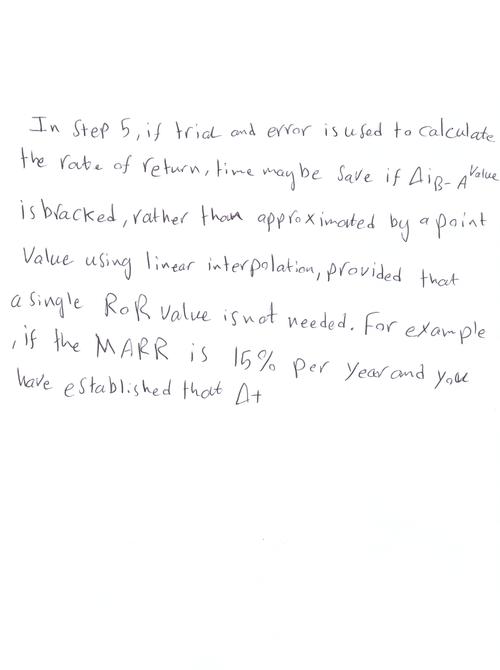 In Step 5, if trial and error is used to calculate
the rate of return, time may be Save if Δi B-A Value
is bracked, rather than approximated by a point
Value using linear interpolation, provided that
a single RoR value is not needed. For example
, if the MARR is 15% per year and you
have established that Δ+